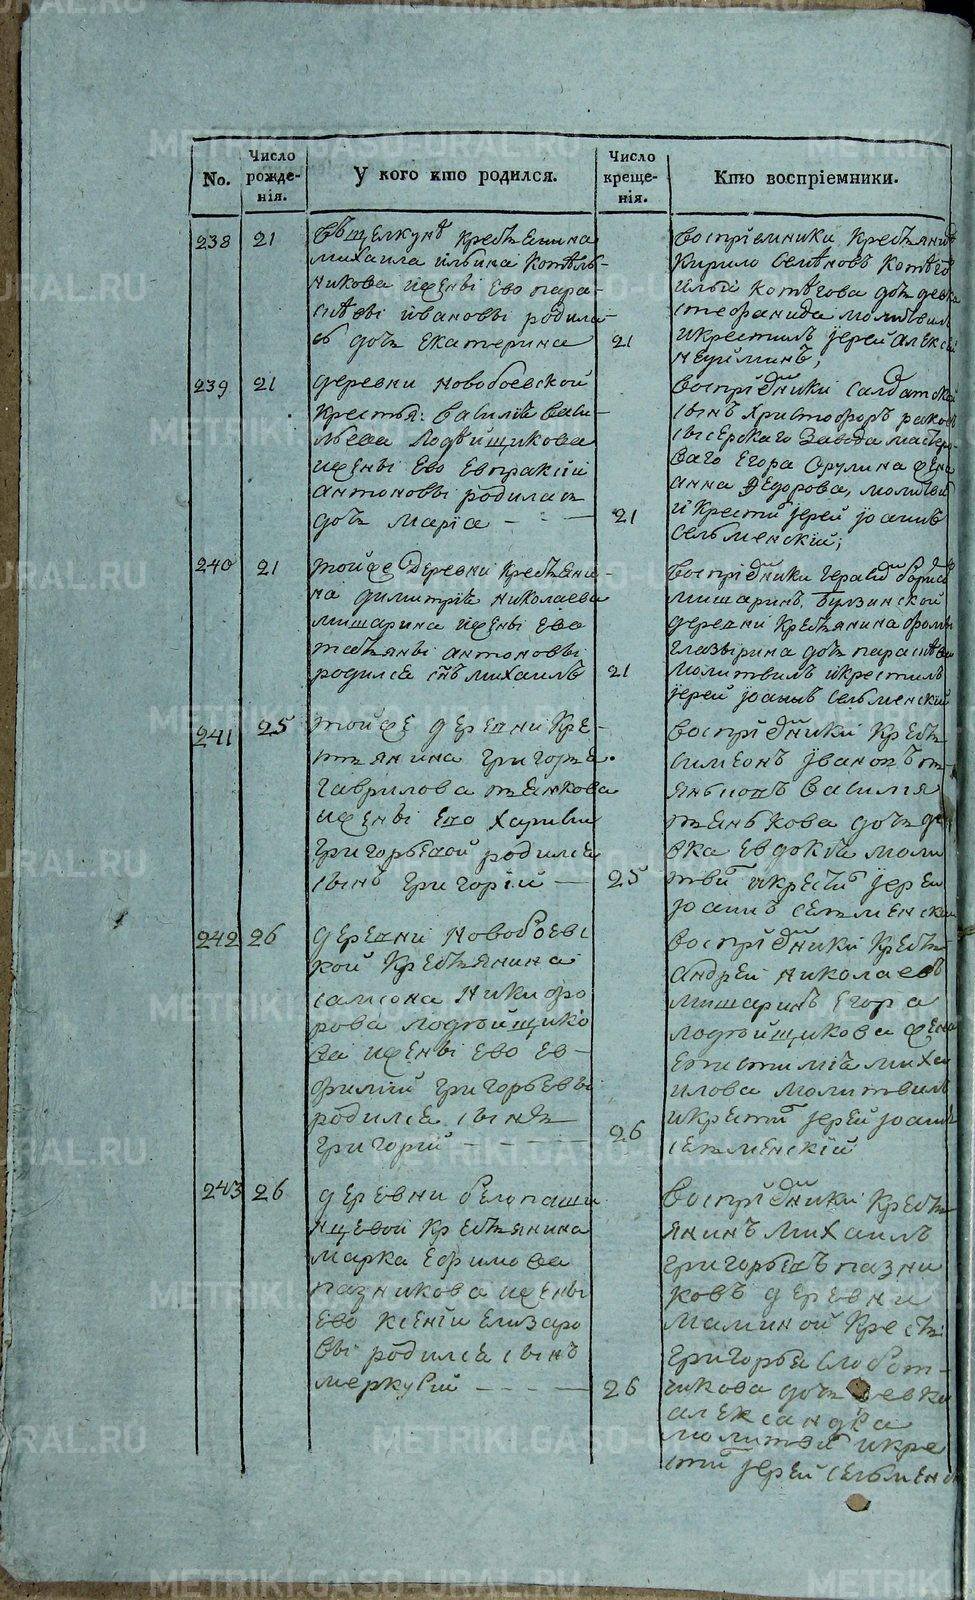 No.
Число рожде-нія.
У кого кто родился.
Число креще-нія.
Кто воспріемники.
238 21
въ щелкунѣ крестьянина
михаила ильина котель-
никова иженѣ ево пара-
родила
дочь екатерина 21
воспріемники крестьянинъ
Кирило
дочь девка
стефанида молитвилъ
икрестилъ іерей алексѣй
239 21
деревни новобоевской
крестья: василья васи-
льева Лодейщикова
иженѣ ево евпраксіи
антоновы родилась
дочь марія - - — 21
воспріемники салдатской
сынъ христофоръ
сысерскаго завода мастеро-
ваго Егора жена
анна Федорова, молитвилъ
и крестилъ іерей іоаннъ
сельменскій;
240 21
тойже деревни крестьяни-
на димитрія николаева
мишарина иженѣ ево
татьянѣ антоновы
родился сынъ михаилъ 21
воспріемники
мишаринъ,
деревни крестьянина фомы
глазырина дочь
молитвилъ икрестилъ
іерей іоаннъ сельменскій
241 25
тойже деревни кре-
стьянина григорья
гаврилова
иженѣ ево
григорьевой родился
сынъ григорій — 25
воспріемники кресть
симеонъ ивановъ
василія
дочь де
вка евдокія моли
твилъ икрестилъ іерей
іоаннъ сельменскій
242 26
деревни новобоевс
кой крестьянина
самсона никифо
рова лодейщико
ва иженѣ ево ев-
фиміи григорьевы
родился сынъ
григорій - - - - - 26
воспріемники кресть
андрей николаевъ
мишаринъ егора
лодейщикова жена
миха
илова молитвилъ
икрестилъ іерей іоаннъ
сельменскій
243 26
деревни белопаши
нцевой крестьянина
марка ефимова
пазникова иженѣ
ево ксеніи елизаро
вы родился сынъ
меркурій - - - — 26
воспріемники кресть
янинъ михаилъ
григорьевъ пазни
ковъ деревни
маминой кресть:
григорья слобот-
чикова дочь девка
александра
молитвилъ икре
стилъ іерей сельменск
METRIKI.GASO-URAL.RU